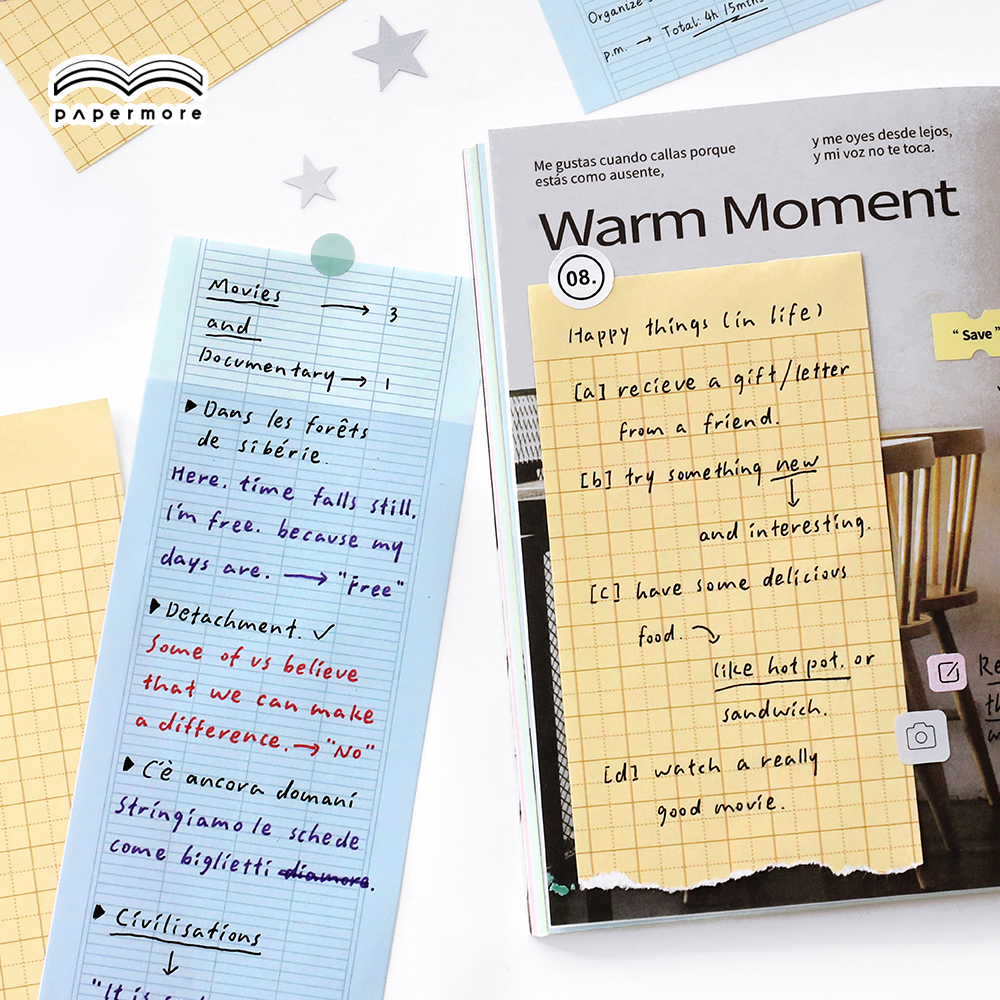 papermore
Organize
p.m. → Total: 4h 15mins
Me gustas cuando callas porque
estás como ausente,
y me oyes desde lejos,
y mi voz no te toca.
Warm Moment
08.
"Save"
Happy things (in life)
[a] recieve a gift/letter
from a friend.
[b] try something new
↓
and interesting.
[c] have some delicious
food.
like hot pot. or
sandwich.
[d] watch a really
good movie.
Movies → 3
and
Documentary → 1
▶ Dans les forêts
de sibérie.
Here. time falls still.
I'm free. because my
days are. → "Free"
▶ Detachment. ✓
Some of us believe
that we can make
a difference. → "No"
▶ C'è ancora domani
Stringiamo le schede
come biglietti diamore.
▶ Civilisations
↓
"It is